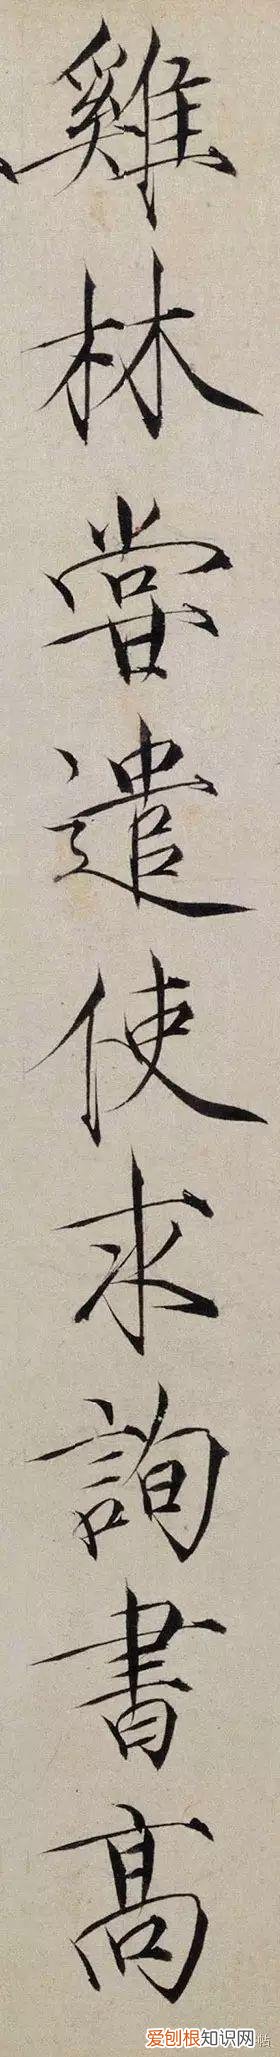 雞林嘗遣使求詢書高
爱刨根知识网
帖